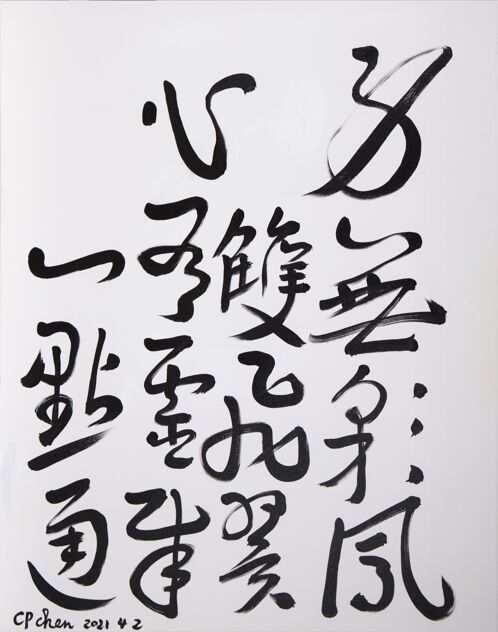 身無彩鳳
雙飛翼
心有靈犀
一點通
CP Chen 2021 4 2